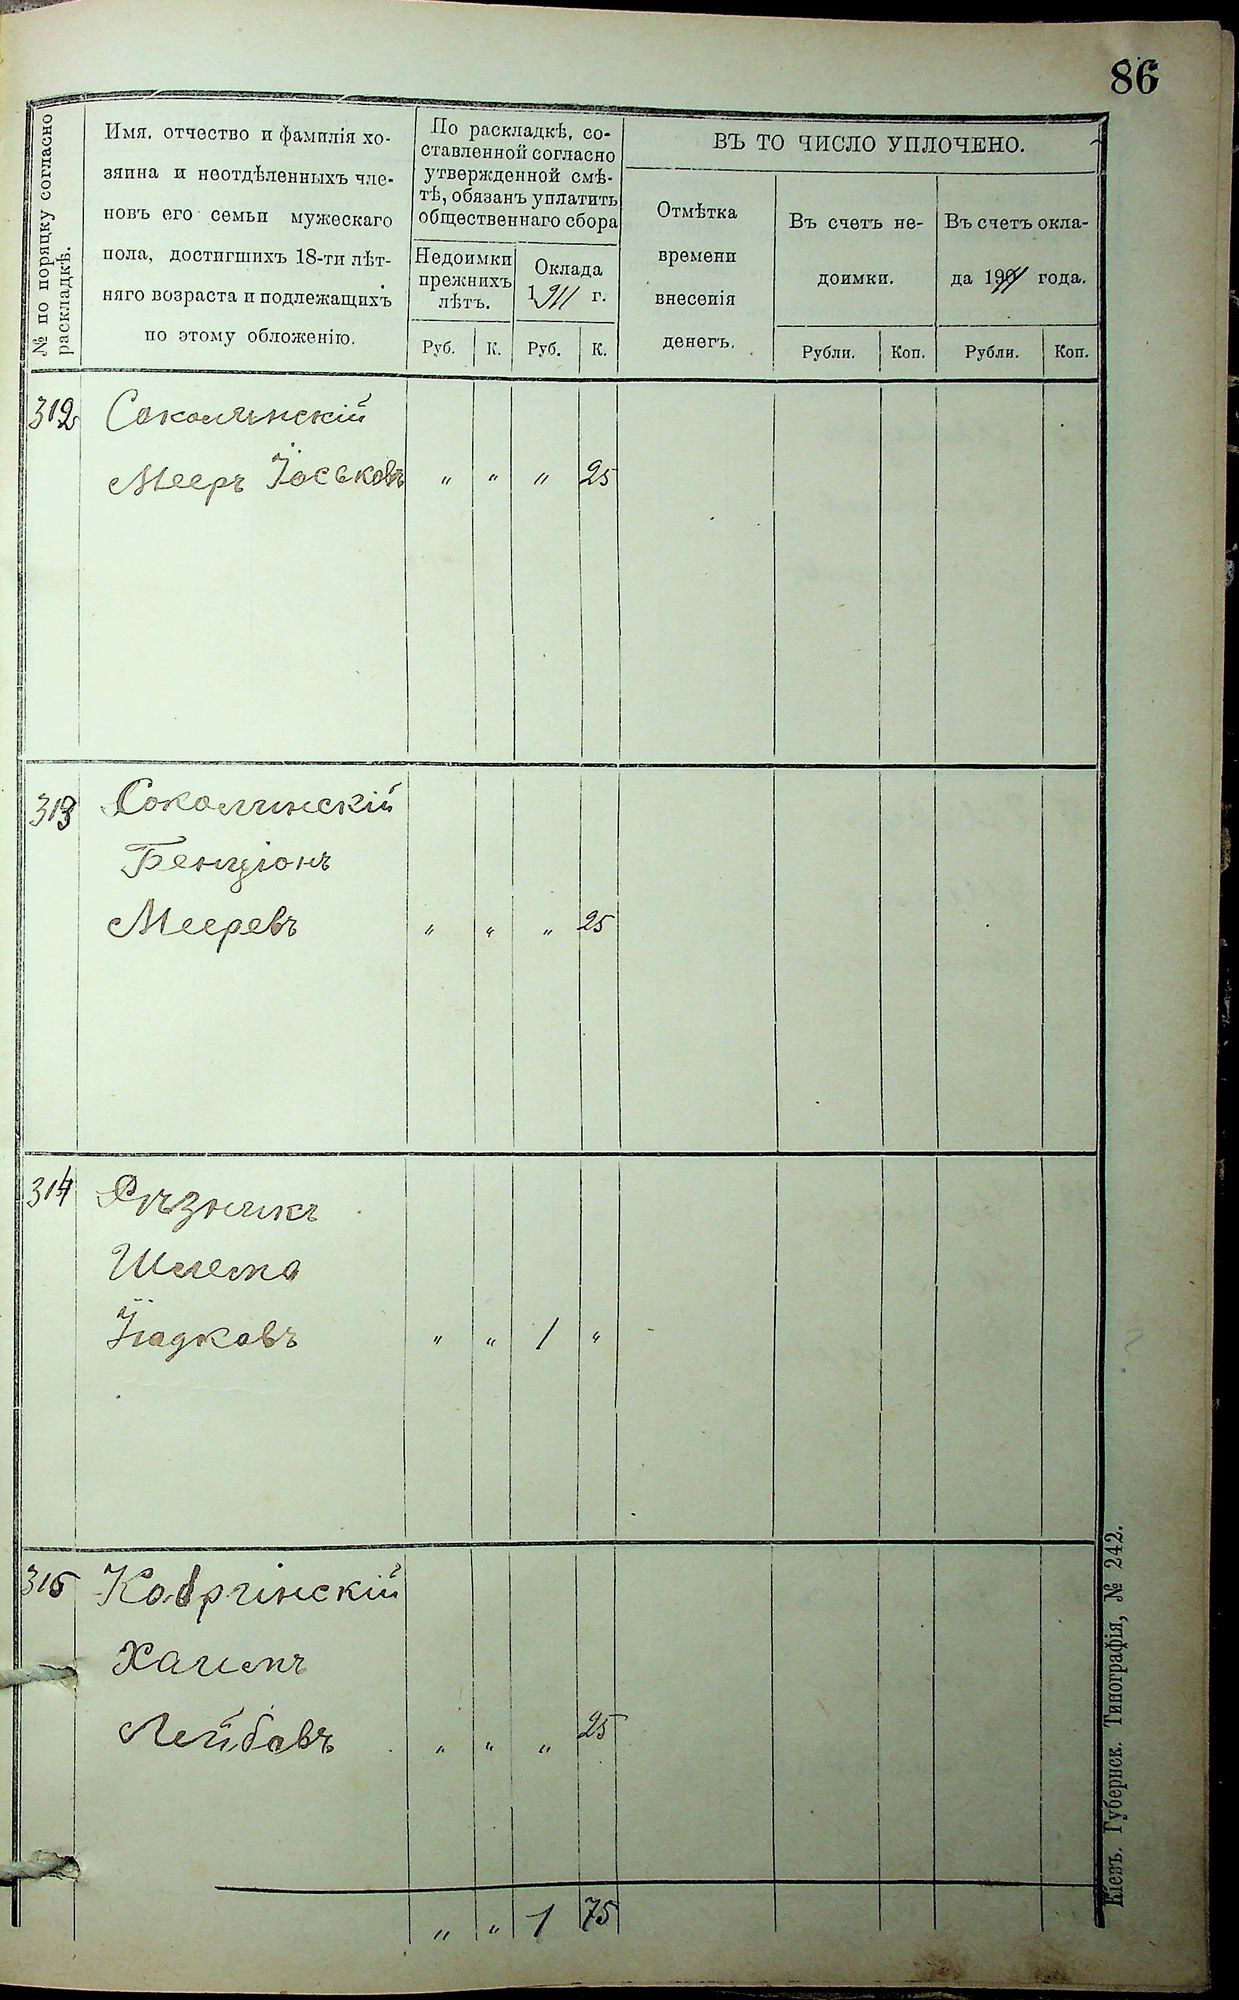 86
№ по порядку согласно
раскладкѣ.
Имя, отчество и фамилія хо-
зяина и неотдѣленныхъ чле-
новъ его семьи мужескаго
пола, достигшихъ 18-ти лѣт-
няго возраста и подлежащихъ
по этому обложенію.
По раскладкѣ, со-
ставленной согласно
утвержденной смѣ-
тѣ, обязанъ уплатить
общественнаго сбора
Недоимки
прежнихъ
лѣтъ.
Оклада
1911 г.
Руб. К. Руб. К.
ВЪ ТО ЧИСЛО УПЛОЧЕНО.
Отмѣтка
времени
внесенія
денегъ.
Въ счетъ не-
доимки.
Въ счетъ окла-
да 1911 года.
Рубли. Коп. Рубли. Коп.
312 Соколинскій
Мееръ Іоськовъ " " " 25
313 Соколинскій
Бенціонъ
Мееревъ " " " 25
314 Рѣзникъ
Шлема
" " 1 "
315
Хаимъ
Лейбовъ " " " 25
" " 1 75
Кіевъ. Губернск. Типографія, № 242.